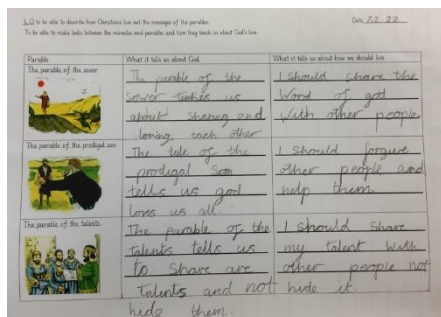 L.O to be able to describe how Christians live out the messages of the parables.
Date 7.2.22
To be able to make links between the miracles and parables and how they teach us about God's love.
Parable
What it tells us about God
What it tells us about how we should live
The parable of the sower
The parable of the
sower teches us
about sharing and
loving each other
I should share the
Word of god
with other people
The parable of the prodigal son
The tale of the
prodigal son
tells us god
loves us all.
I should forgive
other people and
help them.
The parable of the talents
The parable of the
talents tells us
to share are
talents and not
hide them.
I should share
my talent with
other people not
hide it.